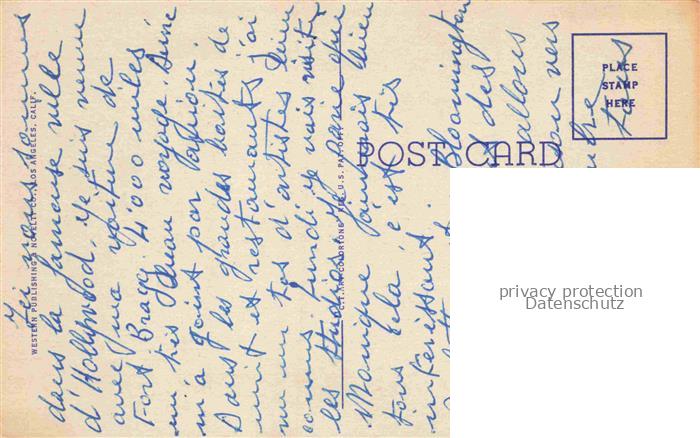 Ici nous sommes
dans la fameuse ville
d'Hollywood. Je suis venue
avec ma voiture de
Fort Bragg 4'000 miles
un très beau voyage. Aime
m'a joint par avion.
Dans les grandes boîtes de
nuit et restaurants j'ai
vu un tas d'artistes bien
connus. Lundi je vais visiter
les studios. Je parie que
Monique aimerais bien
tous cela, c'est très
intéressant.
Bloomington
des
allons
vers
tous
POST CARD
PLACE
STAMP
HERE
WESTERN PUBLISHING & NOVELTY CO., LOS ANGELES, CALIF.
C.T. ART-COLORTONE REG. U.S. PAT. OFF.
privacy protection
Datenschutz